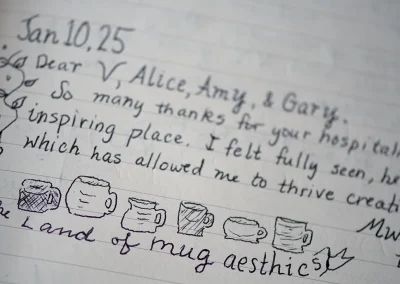 Jan 10, 25
Dear V, Alice, Amy, & Gary.
So many thanks for your hospital
inspiring place. I felt fully seen, he
which has allowed me to thrive creati
Mw
he Land of mug aesthics